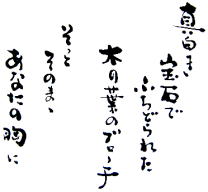 真白き
宝石で
ふちどられた
木の葉のブローチ
そっと
そのまゝ
あなたの胸に